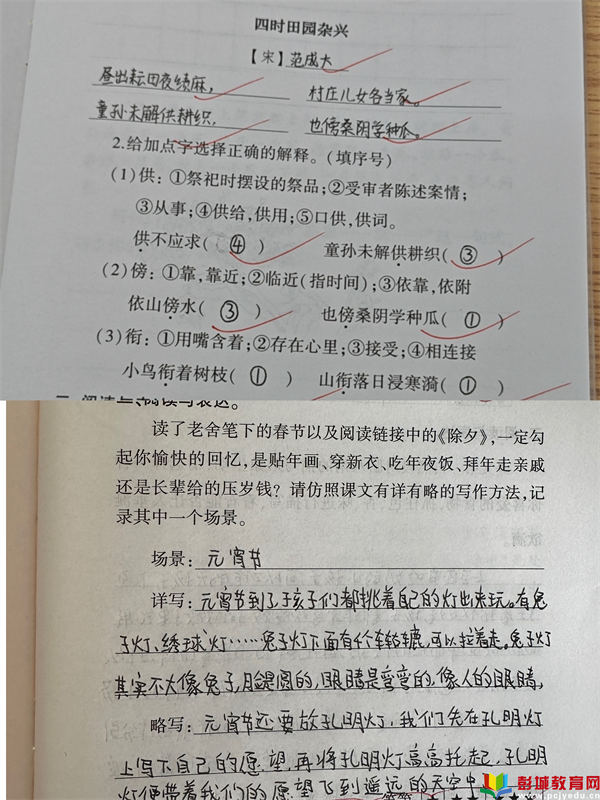 四时田园杂兴
【宋】范成大
昼出耘田夜绩麻, 村庄儿女各当家。
童孙未解供耕织, 也傍桑阴学种瓜。
2.给加点字选择正确的解释。(填序号)
(1)供:①祭祀时摆设的祭品;②受审者陈述案情;
③从事;④供给,供用;⑤口供,供词。
供不应求(④) 童孙未解供耕织(③)
(2)傍:①靠,靠近;②临近(指时间);③依靠,依附
依山傍水(③) 也傍桑阴学种瓜(①)
(3)衔:①用嘴含着;②存在心里;③接受;④相连接
小鸟衔着树枝(①) 山衔落日浸寒漪(①)
读了老舍笔下的春节以及阅读链接中的《除夕》,一定勾
起你愉快的回忆,是贴年画、穿新衣、吃年夜饭、拜年走亲戚
还是长辈给的压岁钱？请仿照课文有详有略的写作方法,记
录其中一个场景。
场景:元宵节
详写:元宵节到了,孩子们都挑着自己的灯出来玩。有兔
子灯、绣球灯……兔子灯下面有个车轱辘,可以拉着走。兔子灯
其实不大像兔子,脸是圆的,眼睛是弯弯的,像人的眼睛,
略写:元宵节还要放孔明灯,我们先在孔明灯
上写下自己的愿望,再将孔明灯高高托起,孔明
灯便带着我们的愿望飞到遥远的天空中
彭城教育网
www.pcjyedu.cn